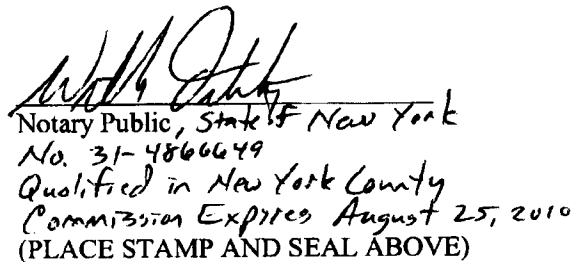 Notary Public, State of New York
No. 31-4866649
Qualified in New York County
Commission Expires August 25, 2010
(PLACE STAMP AND SEAL ABOVE)